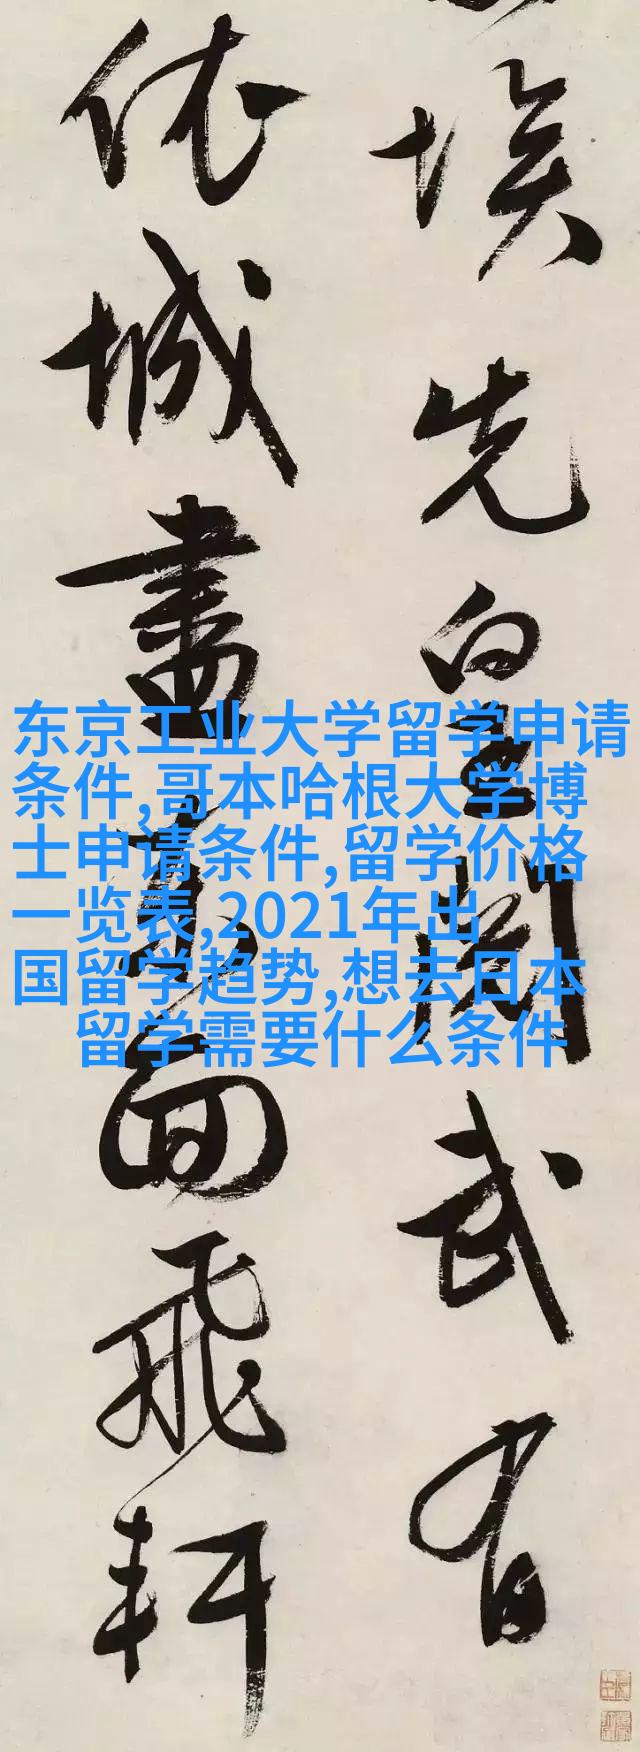 埃先皇閱武有
依城盡面飛軒
东京工业大学留学申请
条件,哥本哈根大学博
士申请条件,留学价格
一览表,2021年出
国留学趋势,想去日本
留学需要什么条件